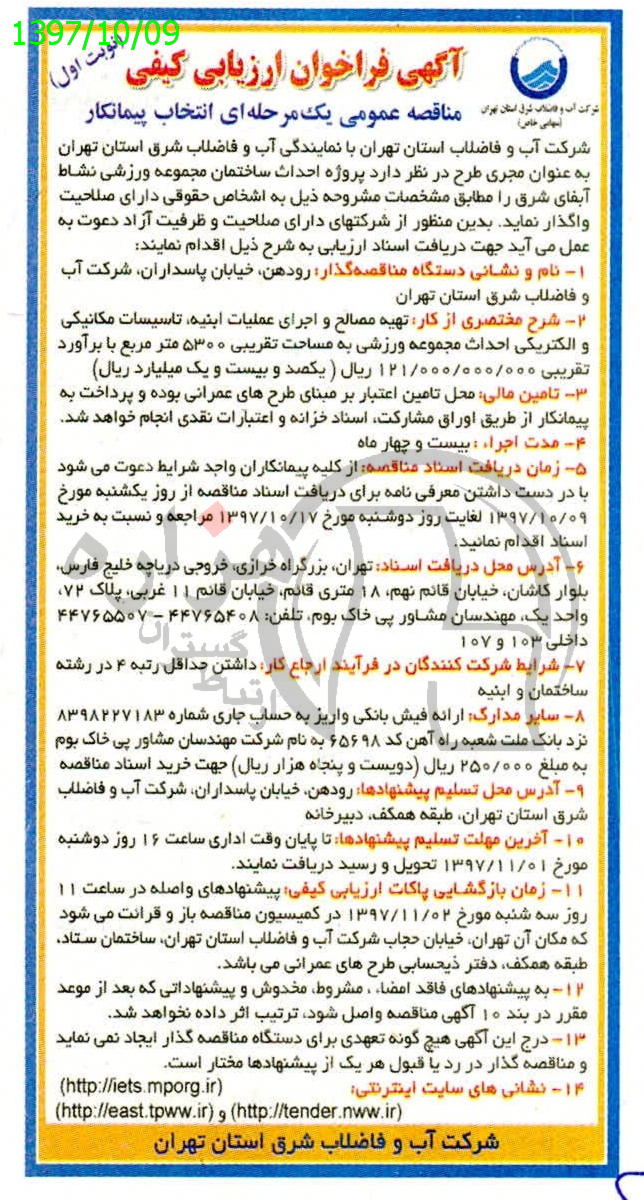 1397/10/09
(نوبت اول)
آگهی فراخوان ارزیابی کیفی
مناقصه عمومی یک مرحله‌ای انتخاب پیمانکار
شرکت آب و فاضلاب شرق استان تهران
(سهامی خاص)
شرکت آب و فاضلاب استان تهران با نمایندگی آب و فاضلاب شرق استان تهران
به عنوان مجری طرح در نظر دارد پروژه احداث ساختمان مجموعه ورزشی نشاط
آبفای شرق را مطابق مشخصات مشروحه ذیل به اشخاص حقوقی دارای صلاحیت
واگذار نماید. بدین منظور از شرکتهای دارای صلاحیت و ظرفیت آزاد دعوت به
عمل می آید جهت دریافت اسناد ارزیابی به شرح ذیل اقدام نمایند:
۱- نام و نشانی دستگاه مناقصه‌گذار: رودهن، خیابان پاسداران، شرکت آب
و فاضلاب شرق استان تهران
۲- شرح مختصری از کار: تهیه مصالح و اجرای عملیات ابنیه، تاسیسات مکانیکی
و الکتریکی احداث مجموعه ورزشی به مساحت تقریبی ۵۳۰۰ متر مربع با برآورد
تقریبی ۱۲۱/۰۰۰/۰۰۰/۰۰۰ ریال ( یکصد و بیست و یک میلیارد ریال)
۳- تامین مالی: محل تامین اعتبار بر مبنای طرح های عمرانی بوده و پرداخت به
پیمانکار از طریق اوراق مشارکت، اسناد خزانه و اعتبارات نقدی انجام خواهد شد.
۴- مدت اجراء : بیست و چهار ماه
۵- زمان دریافت اسناد مناقصه: از کلیه پیمانکاران واجد شرایط دعوت می شود
با در دست داشتن معرفی نامه برای دریافت اسناد مناقصه از روز یکشنبه مورخ
۱۳۹۷/۱۰/۰۹ لغایت روز دوشنبه مورخ ۱۳۹۷/۱۰/۱۷ مراجعه و نسبت به خرید
اسناد اقدام نمائید.
۶- آدرس محل دریافت اسناد: تهران، بزرگراه خرازی، خروجی دریاچه خلیج فارس،
بلوار کاشان، خیابان قائم نهم، ۱۸ متری قائم، خیابان قائم ۱۱ غربی، پلاک ۷۲،
واحد یک، مهندسان مشاور پی خاک بوم، تلفن: ۴۴۷۶۵۴۰۸ – ۴۴۷۶۵۵۰۷
داخلی ۱۰۳ و ۱۰۷
۷- شرایط شرکت کنندگان در فرآیند ارجاع کار: داشتن حداقل رتبه ۴ در رشته
ساختمان و ابنیه
۸- سایر مدارک: ارائه فیش بانکی واریز به حساب جاری شماره ۸۳۹۸۲۲۷۱۸۳
نزد بانک ملت شعبه راه آهن کد ۶۵۶۹۸ به نام شرکت مهندسان مشاور پی خاک بوم
به مبلغ ۲۵۰/۰۰۰ ریال (دویست و پنجاه هزار ریال) جهت خرید اسناد مناقصه
۹- آدرس محل تسلیم پیشنهادها: رودهن، خیابان پاسداران، شرکت آب و فاضلاب
شرق استان تهران، طبقه همکف، دبیرخانه
۱۰- آخرین مهلت تسلیم پیشنهادها: تا پایان وقت اداری ساعت ۱۶ روز دوشنبه
مورخ ۱۳۹۷/۱۱/۰۱ تحویل و رسید دریافت نمایند.
۱۱- زمان بازگشایی پاکات ارزیابی کیفی: پیشنهادهای واصله در ساعت ۱۱
روز سه شنبه مورخ ۱۳۹۷/۱۱/۰۲ در کمیسیون مناقصه باز و قرائت می شود
که مکان آن تهران، خیابان حجاب شرکت آب و فاضلاب استان تهران، ساختمان ستاد،
طبقه همکف، دفتر ذیحسابی طرح های عمرانی می باشد.
۱۲- به پیشنهادهای فاقد امضاء ، مشروط، مخدوش و پیشنهاداتی که بعد از موعد
مقرر در بند ۱۰ آگهی مناقصه واصل شود، ترتیب اثر داده نخواهد شد.
۱۳- درج این آگهی هیچ گونه تعهدی برای دستگاه مناقصه گذار ایجاد نمی نماید
و مناقصه گذار در رد یا قبول هر یک از پیشنهادها مختار است.
۱۴- نشانی های سایت اینترنتی: (http://iets.mporg.ir)
(http://tender.nww.ir) و (http://east.tpww.ir)
شرکت آب و فاضلاب شرق استان تهران
هزاره
گستران
ارتباط